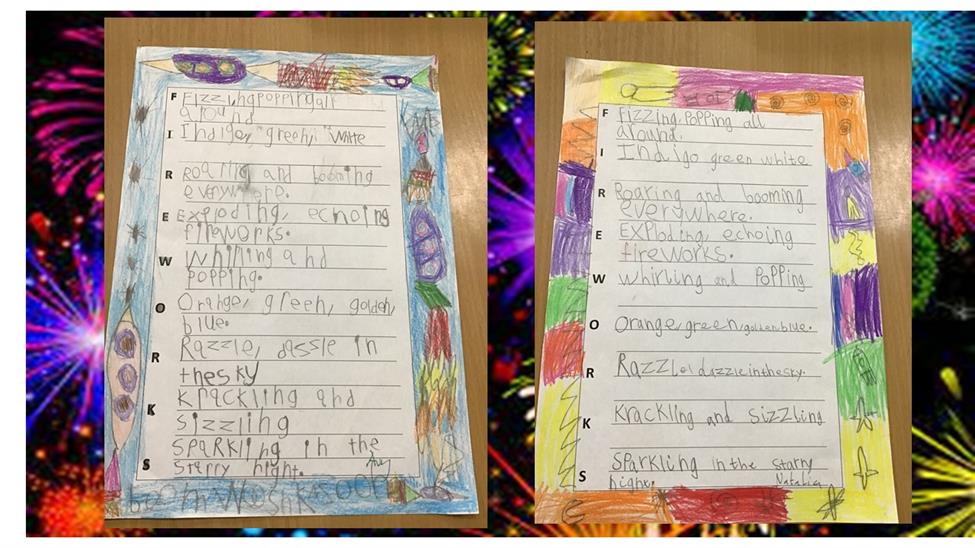 F Fizzing popping all
around
I Indigo, green, White
R Roaring and booming
everywhere.
E Exploding, echoing
fireworks.
W Whining and
Popping.
O Orange, green, golden,
blue.
R Razzle, dassle in
the sky
K Krackling and
Sizzling
S SParkling in the
Starry night.
F Fizzing. Popping all
around.
I Indigo green white
R Roaring and booming
everywhere.
E EXPloding, echoing
fireworks.
W Whirling and Popping
O Orange, green, golden blue.
R dazzle in the sky.
K Krackling and sizzling
S SParkling in the starry
Natalia